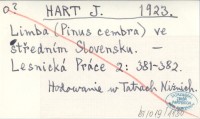 HART J. 1923.
Limba (Pinus cembra) ve
středním Slovensku. —
Lesnická Práce 2: 381-382.
Hodowanie w Tatrach Niżnich.